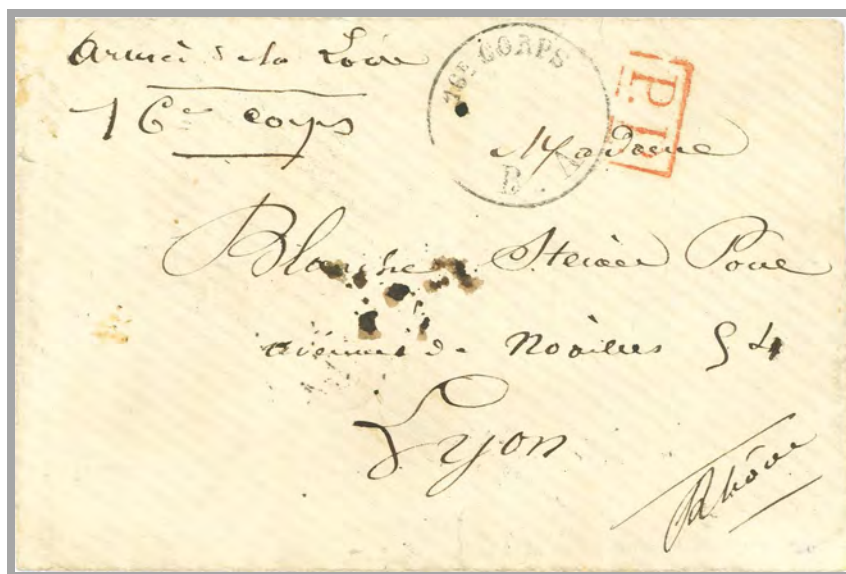 Armée de la Loire
16e corps
16E CORPS
P.P.
Madame
Blanche
avenue de Noailles 54
Lyon
Rhône